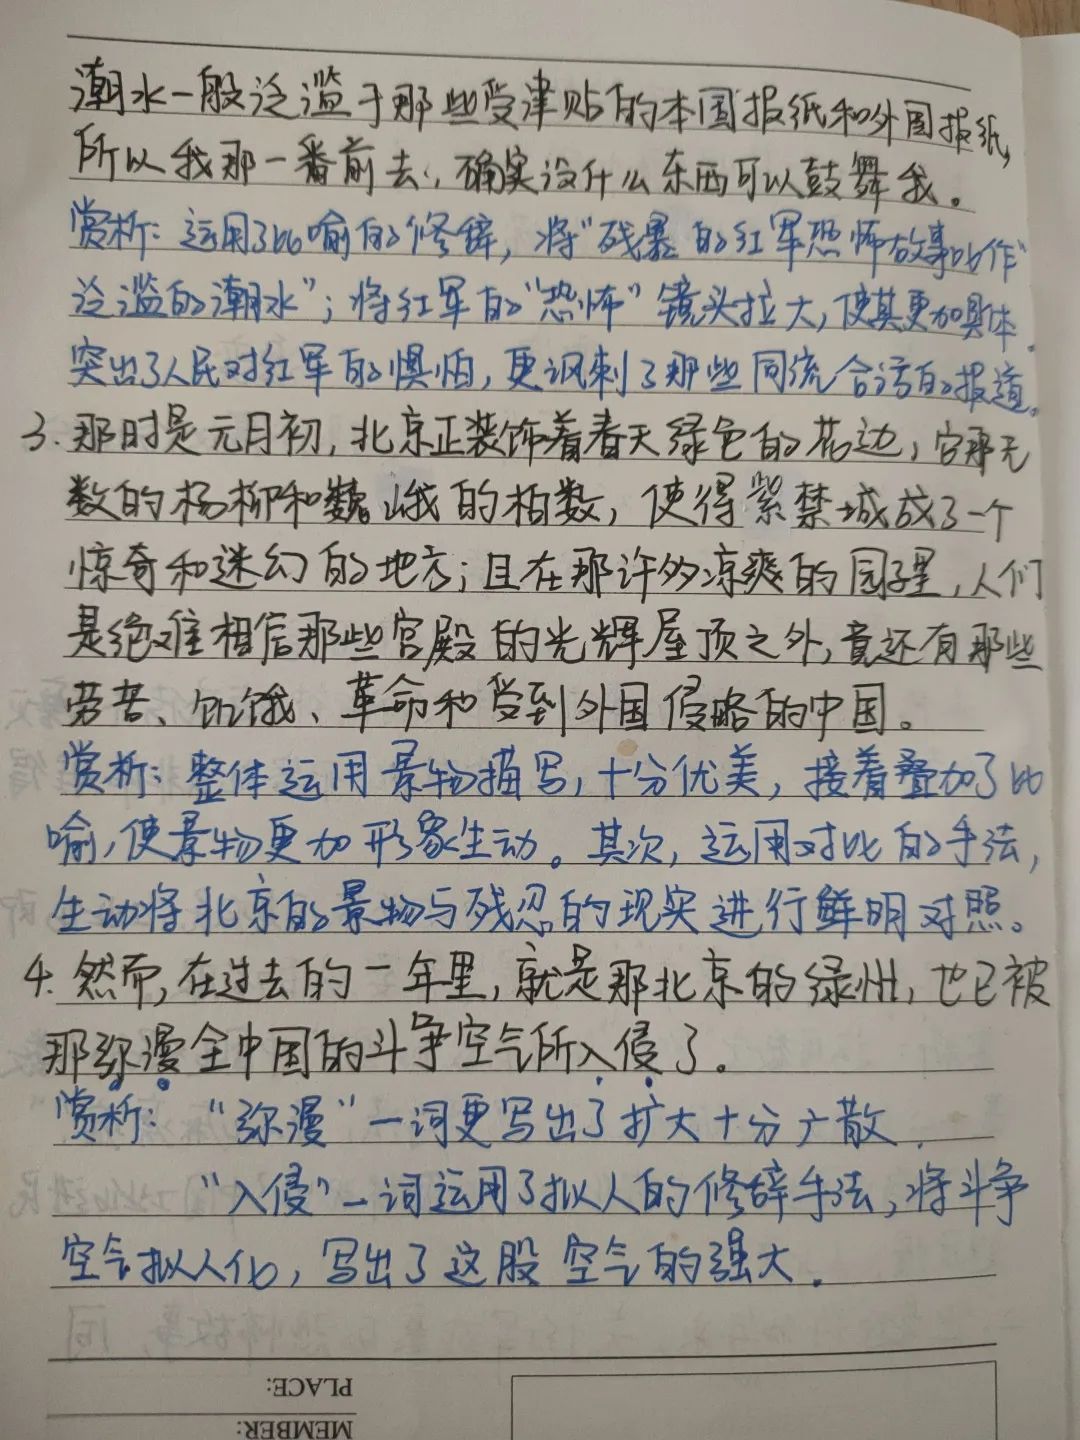 潮水一般泛滥于那些受津贴的本国报纸和外国报纸,
所以我那一番前去,确实没什么东西可以鼓舞我。
赏析:运用了比喻的修辞,将"残暴的红军恐怖故事比作
泛滥的潮水";将红军的"恐怖"镜头拉大,使其更加具体.
突出了人民对红军的惧怕,更讽刺了那些同流合污的报道。
3.那时是元月初,北京正装饰着春天绿色的花边,它那无
数的杨柳和巍峨的柏数,使得紫禁城成了一个
惊奇和迷幻的地方;且在那许多凉爽的园子里,人们
是绝难相信那些宫殿的光辉屋顶之外,竟还有那些
劳苦、饥饿、革命和受到外国侵略的中国。
赏析:整体运用景物描写,十分优美,接着叠加了比
喻,使景物更加形象生动。其次,运用对比的手法,
生动将北京的景物与残忍的现实进行鲜明对照。
4.然而,在过去的一年里,就是那北京的绿州,也已被
那弥漫全中国的斗争空气所入侵了。
赏析:"弥漫"一词更写出了扩大十分广散.
"入侵"一词运用了拟人的修辞手法,将斗争
空气拟人化,写出了这股空气的强大.
PLACE:
MEMBER: